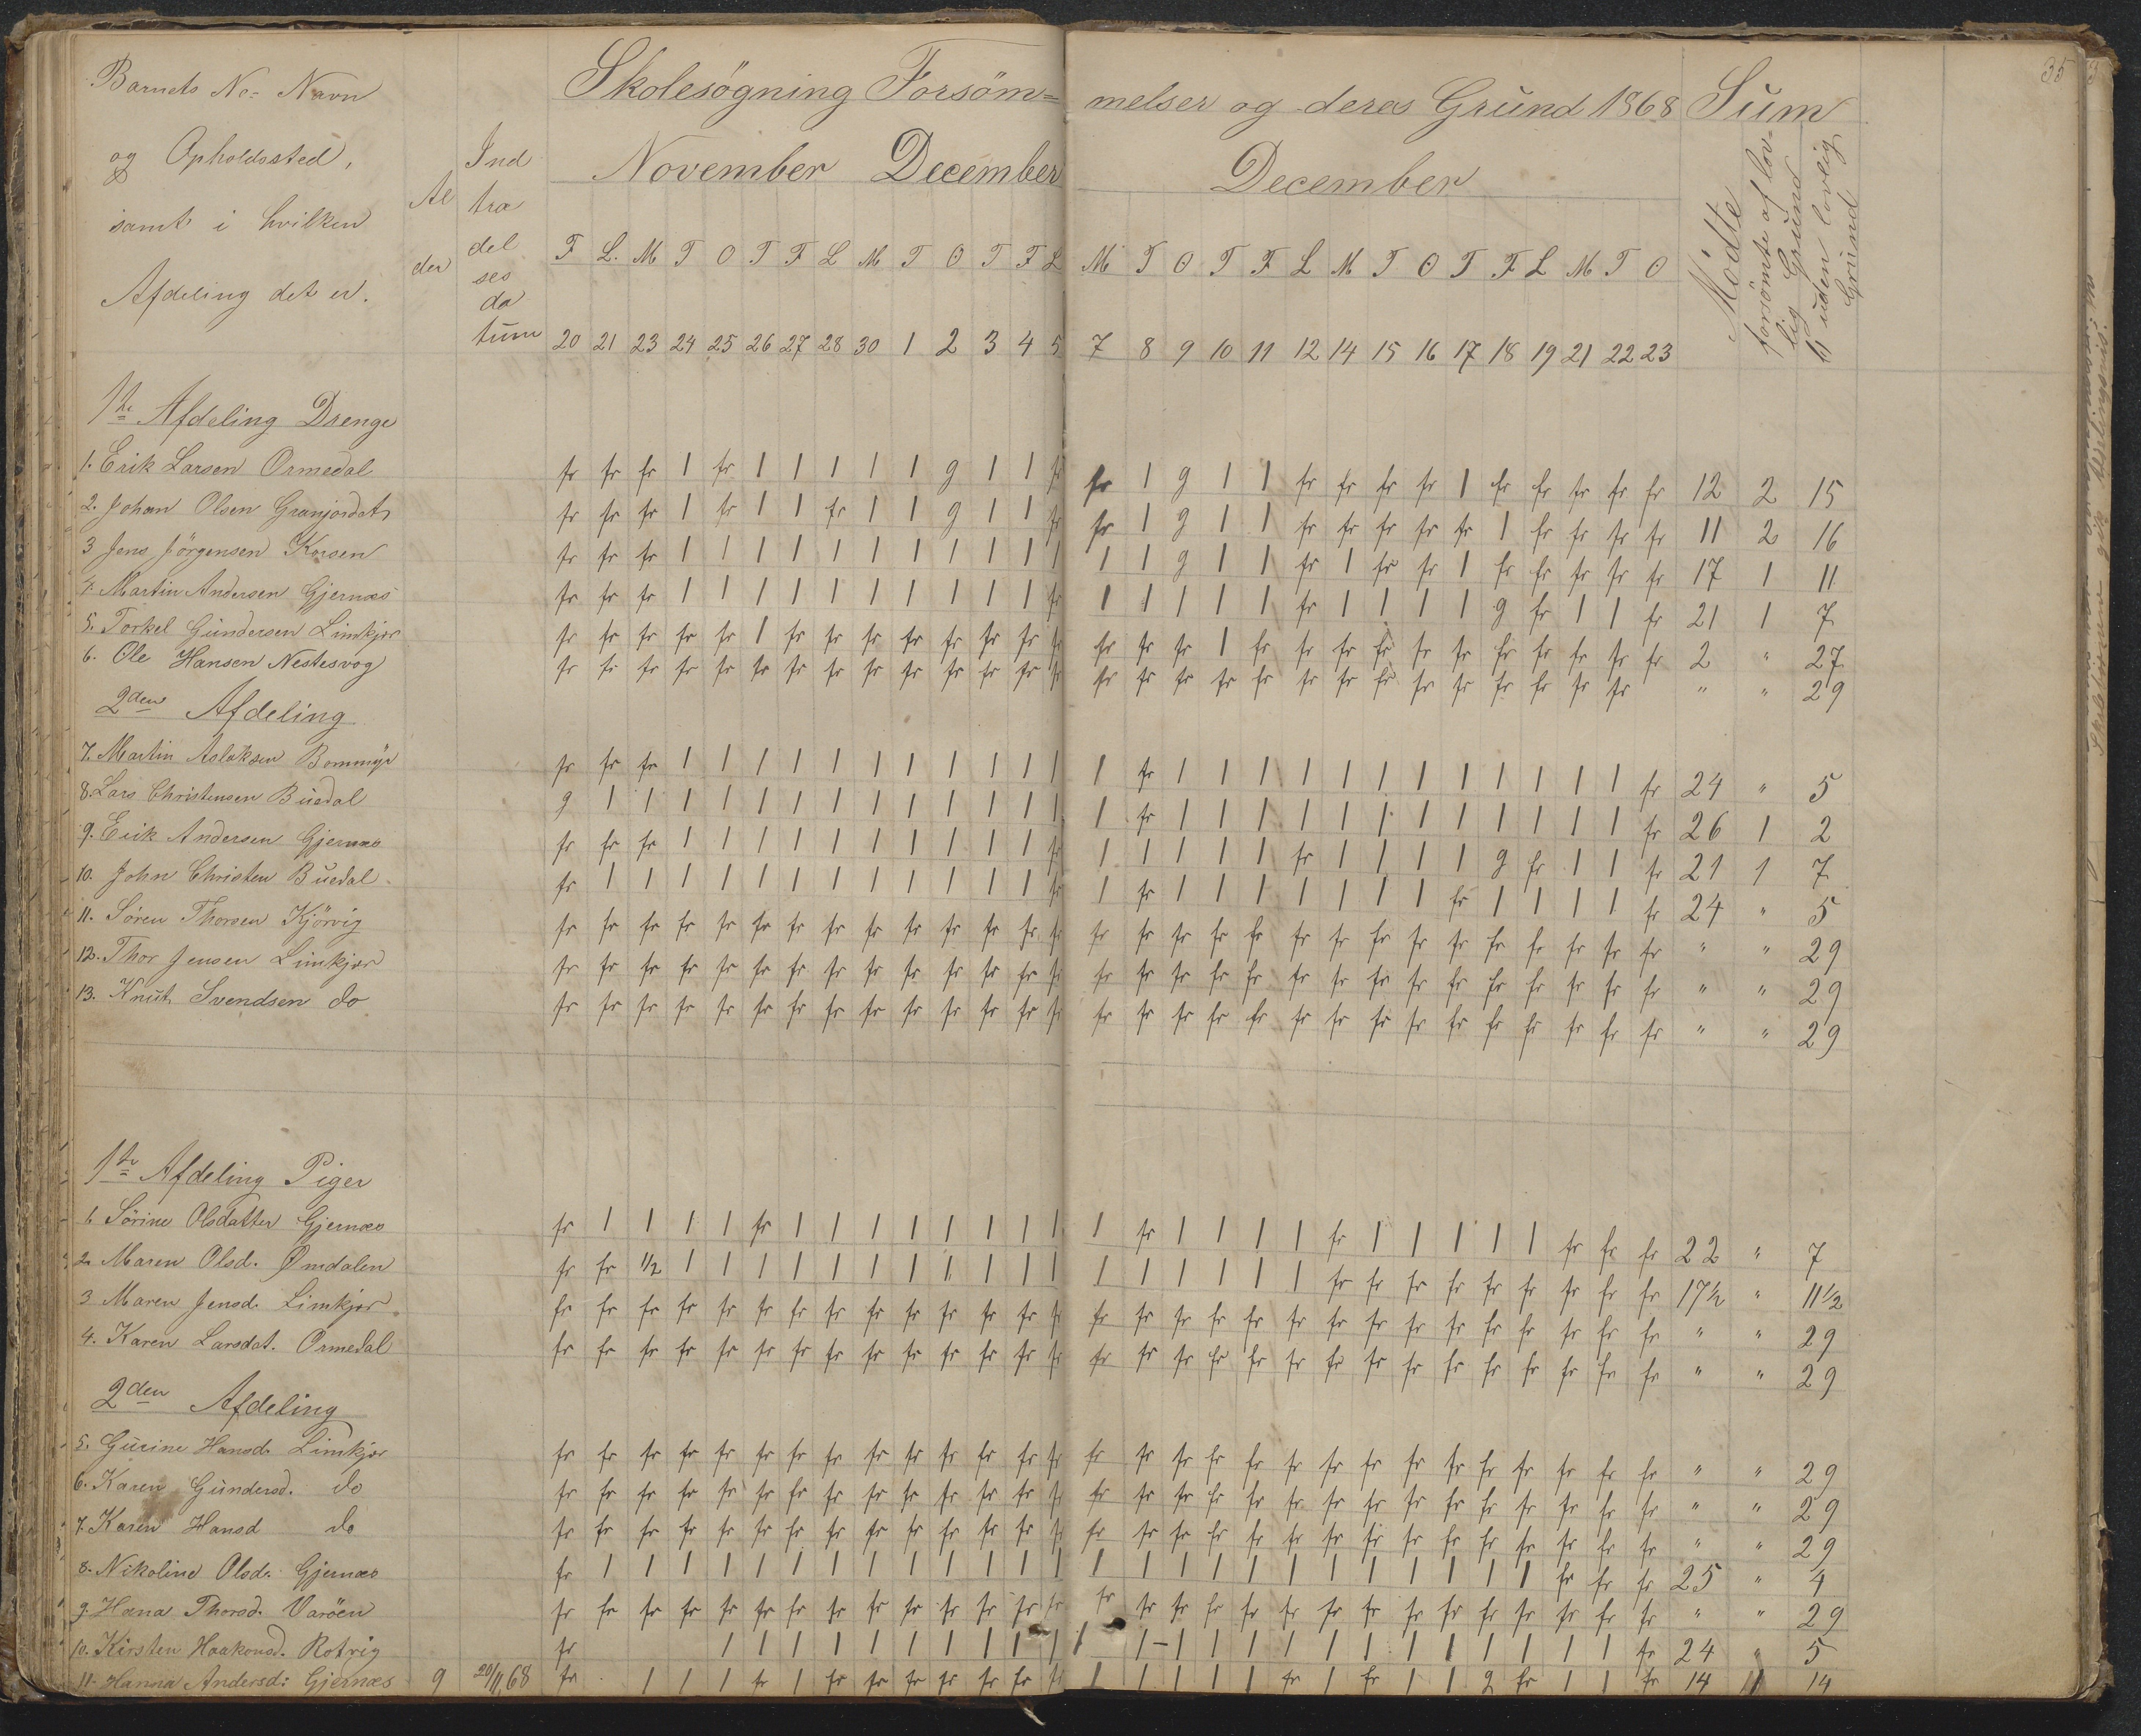 35
Barnets No= Navn
og Opholdssted,
samt i hvilken
Afdeling det er.
Al
der
Ind
tra
del
ses
da
tum
Skolesøgning Forsöm=
melser og deres Grund 1868 Sum
November December
December
F L. M T O T F L M T O T F L
M T O T F L M T O T F L M T O
20 21 23 24 25 26 27 28 30 1 2 3 4 5
7 8 9 10 11 12 14 15 16 17 18 19 21 22 23
Mödte
forsömte af lov-
lig Grund
uden lovlig
Grund
1te Afdeling Drenge
1. Erik Larsen Ormedal fr fr fr 1 fr 1 1 1 1 1 g 1 1 fr fr 1 g 1 1 fr fr fr fr 1 fr fr fr fr fr 12 2 15
2. Johan Olsen fr fr fr 1 fr 1 1 fr 1 1 g 1 1 fr fr 1 g 1 1 fr fr fr fr fr 1 fr fr fr fr 11 2 16
3 Jens Jörgensen Korsen fr fr fr 1 1 1 1 1 1 1 1 1 1 1 1 1 g 1 1 fr 1 fr fr 1 fr fr fr fr fr 17 1 11
4. Martin Andersen Gjernæs fr fr fr 1 1 1 1 1 1 1 1 1 1 fr 1 1 1 1 1 fr 1 1 1 1 g fr 1 1 fr 21 1 7
5. Torkel Gundersen Limkjær fr fr fr fr fr 1 fr fr fr fr fr fr fr fr fr fr fr 1 fr fr fr fr fr fr fr fr fr fr fr 2 " 27
6. Ole Hansen Nestesvog fr fr fr fr fr fr fr fr fr fr fr fr fr fr fr fr fr fr fr fr fr fr fr fr fr fr fr fr " " 29
2den Afdeling
7. Martin Aslaksen Bommyr fr fr fr 1 1 1 1 1 1 1 1 1 1 1 1 fr 1 1 1 1 1 1 1 1 1 1 1 1 fr 24 " 5
8. Lars Christensen Buedal g 1 1 1 1 1 1 1 1 1 1 1 1 1 1 fr 1 1 1 1 1 1 1 1 1 1 1 1 fr 26 1 2
9. Erik Andersen Gjernæs fr fr fr 1 1 1 1 1 1 1 1 1 1 fr 1 1 1 1 1 fr 1 1 1 1 g fr 1 1 fr 21 1 7
10. John Christen Buedal fr 1 1 1 1 1 1 1 1 1 1 1 1 fr 1 fr 1 1 1 1 1 1 1 fr 1 1 1 1 fr 24 " 5
11. Sören Thorsen Kjörvig fr fr fr fr fr fr fr fr fr fr fr fr fr fr fr fr fr fr fr fr fr fr fr fr fr fr fr fr fr " " 29
12. Thor Jensen Limkjær fr fr fr fr fr fr fr fr fr fr fr fr fr fr fr fr fr fr fr fr fr fr fr fr fr fr fr fr fr " " 29
13. Knut Svendsen do fr fr fr fr fr fr fr fr fr fr fr fr fr fr fr fr fr fr fr fr fr fr fr fr fr fr fr fr fr " " 29
1te Afdeling Piger
1. Sörine Olsdatter Gjernæs fr 1 1 1 1 fr 1 1 1 1 1 1 1 1 1 fr 1 1 1 1 fr 1 1 1 1 1 fr fr fr 22 " 7
2. Maren Olsd. Ømdalen fr fr 1/2 1 1 1 1 1 1 1 1 1 1 1 1 1 1 1 1 1 fr fr fr fr fr fr fr fr fr 17 1/2 " 11 1/2
3 Maren Jensd. Limkjær fr fr fr fr fr fr fr fr fr fr fr fr fr fr fr fr fr fr fr fr fr fr fr fr fr fr fr fr fr " " 29
4. Karen Larsdat. Ormedal fr fr fr fr fr fr fr fr fr fr fr fr fr fr fr fr fr fr fr fr fr fr fr fr fr fr fr fr fr " " 29
2den Afdeling
5. Gurine Hansd. Limkjær fr fr fr fr fr fr fr fr fr fr fr fr fr fr fr fr fr fr fr fr fr fr fr fr fr fr fr fr fr " " 29
6. Karen Gundersd. do fr fr fr fr fr fr fr fr fr fr fr fr fr fr fr fr fr fr fr fr fr fr fr fr fr fr fr fr fr " " 29
7. Karen Hansd do fr fr fr fr fr fr fr fr fr fr fr fr fr fr fr fr fr fr fr fr fr fr fr fr fr fr fr fr fr " " 29
8. Nikoline Olsd. Gjernæs fr 1 1 1 1 1 1 1 1 1 1 1 1 1 1 1 1 1 1 1 1 1 1 1 1 1 fr fr fr 25 " 4
9. Hana Thorsd. Varöen fr fr fr fr fr fr fr fr fr fr fr fr fr fr fr fr fr fr fr fr fr fr fr fr fr fr fr fr fr " " 29
10. Kirsten Haakonsd. Rotvig fr 1 1 1 1 1 1 1 1 1 1 1 1 - 1 1 1 1 1 1 1 1 1 1 1 1 1 fr 24 " 5
11. Hanna Andersd: Gjernæs 9 20/11 68 fr 1 1 1 fr 1 fr fr fr fr fr fr fr 1 1 1 1 1 fr 1 fr 1 1 g fr 1 1 fr 14 1 14